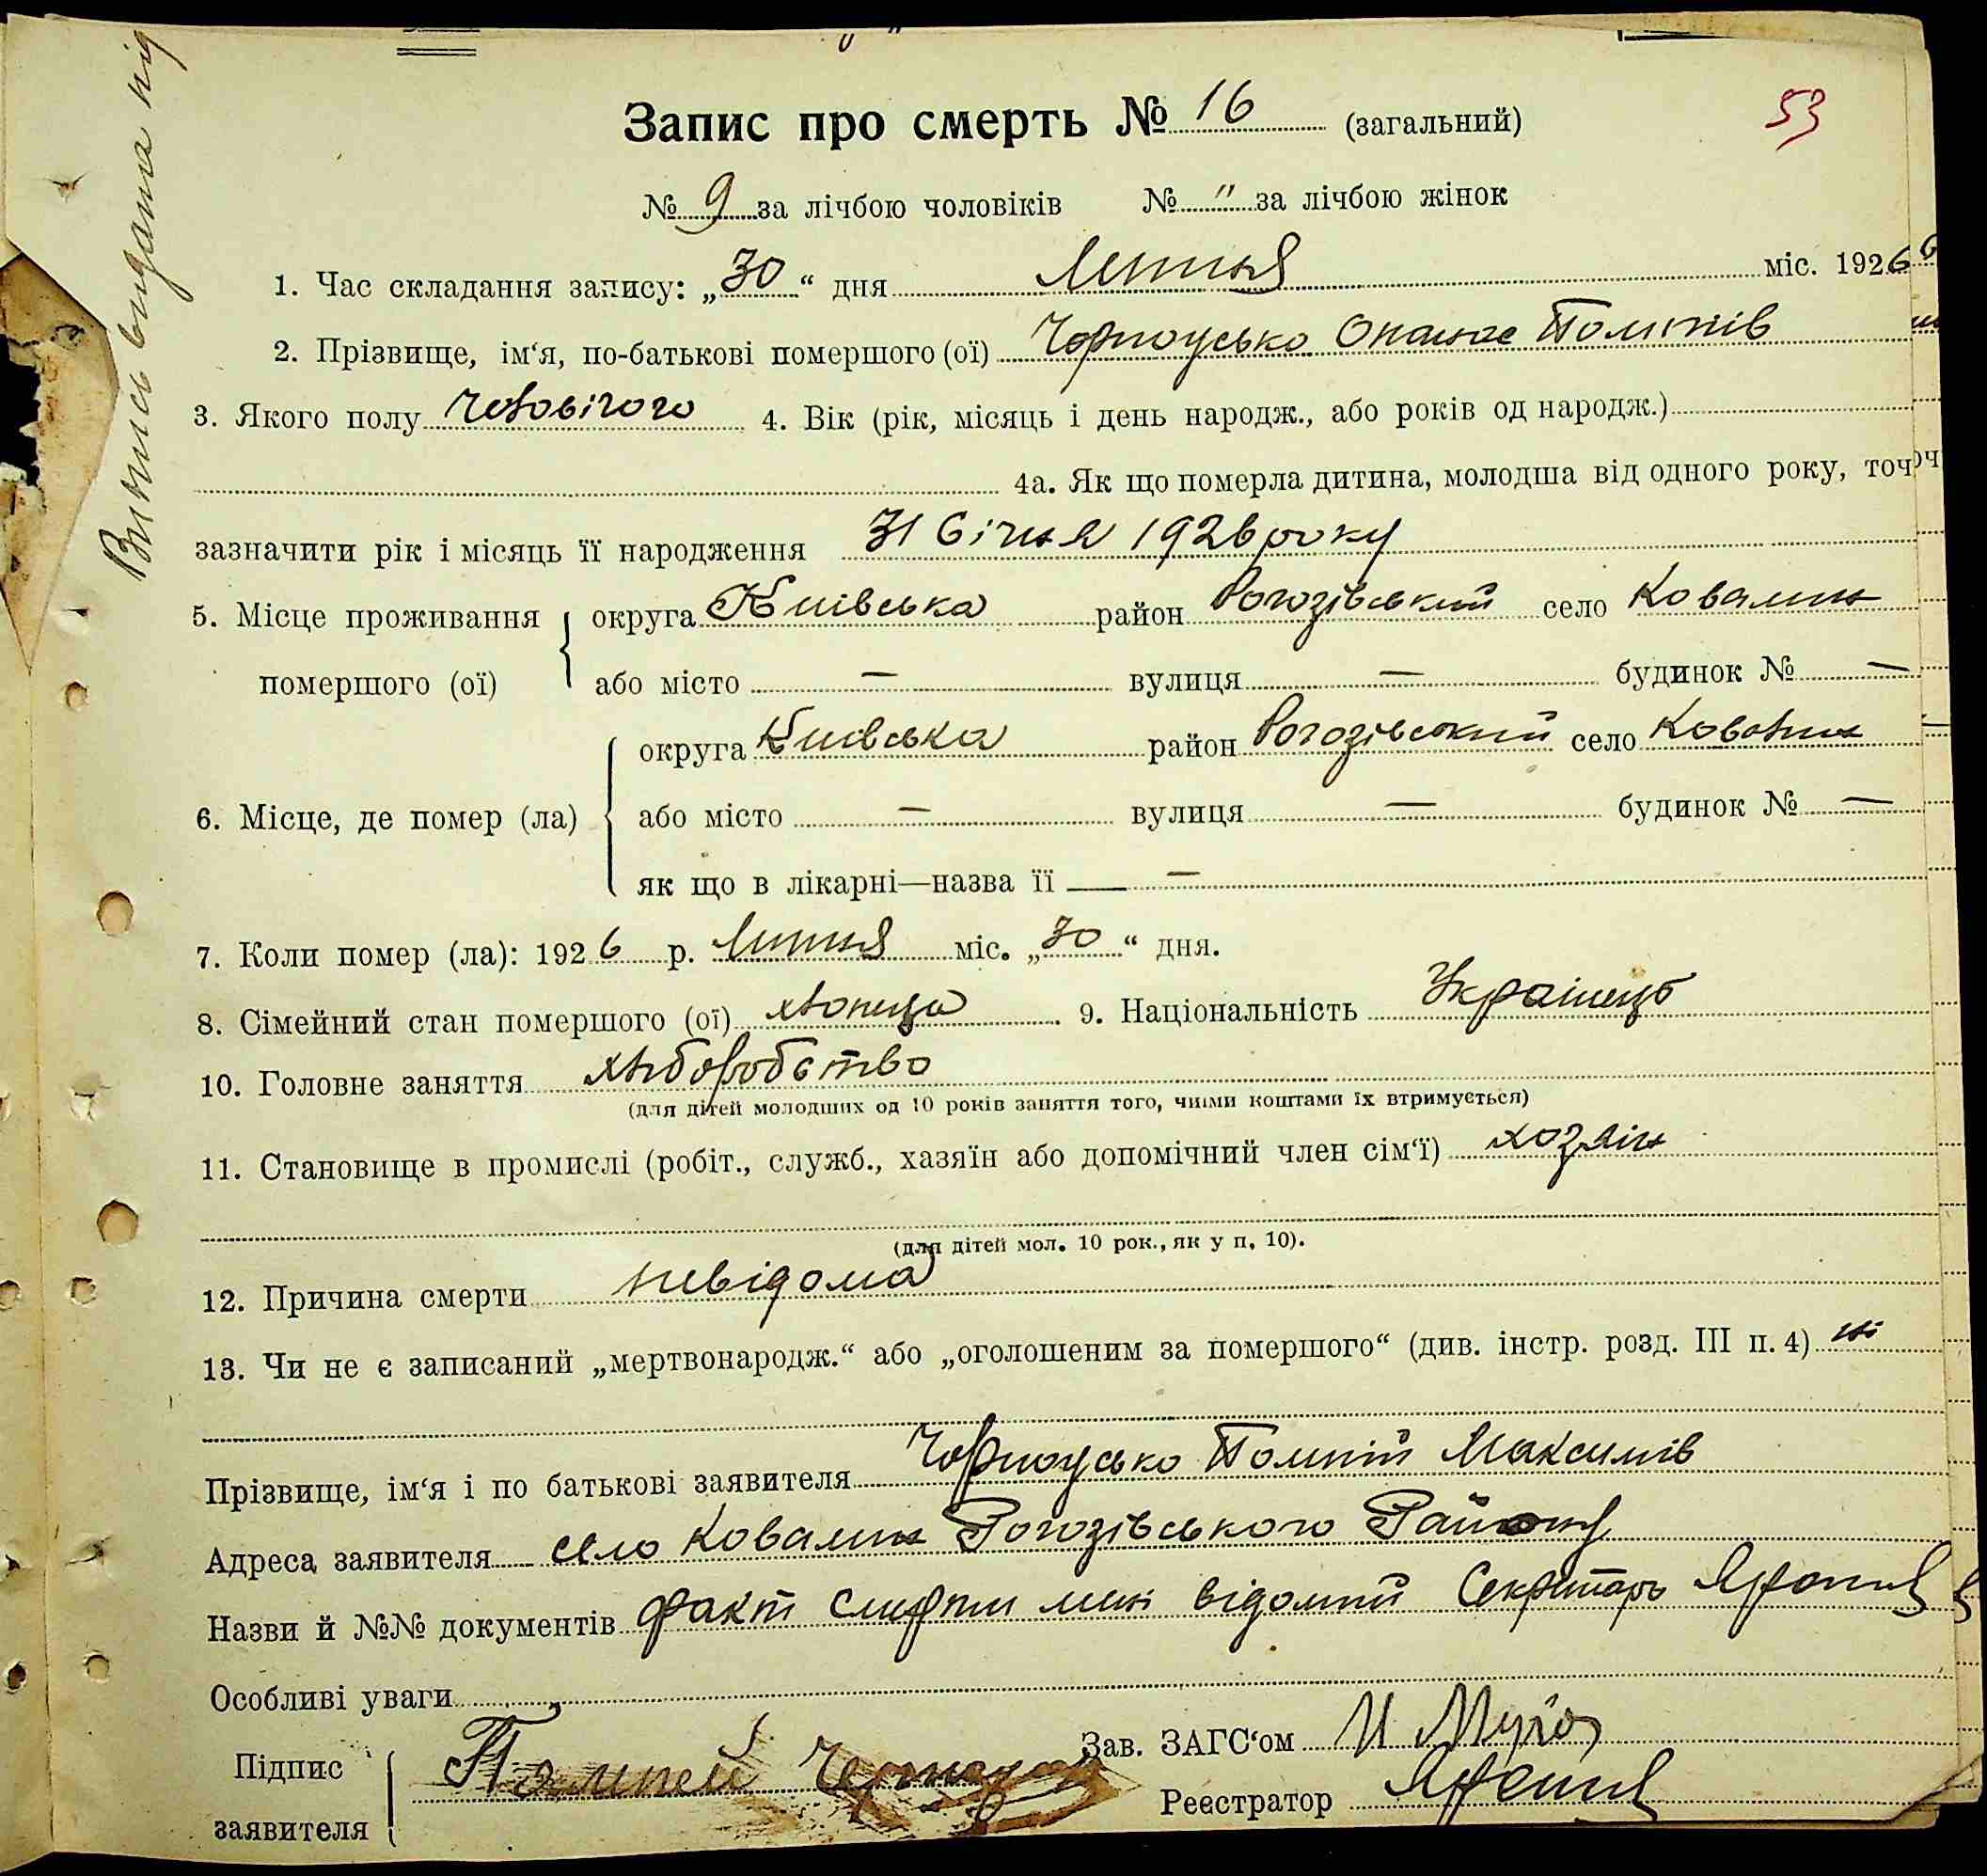 Запис про смерть № 16 (загальний)
53
№ 9 за лічбою чоловіків № " за лічбою жінок
1. Час складання запису: „30“ дня Липня міс. 1926
2. Прізвище, ім‘я, по-батькові помершого (ої) Чорноусько Опанас Помпіїв
3. Якого полу чоловічого 4. Вік (рік, місяць і день народж., або років од народж.)
4а. Як що померла дитина, молодша від одного року, точ
зазначити рік і місяць її народження 31 Січня 1926 року
5. Місце проживання помершого (ої) округа Київська район Рогозівський село Ковалин
або місто — вулиця — будинок № —
6. Місце, де помер (ла) округа Київська район Рогозівський село Ковалин
або місто — вулиця — будинок № —
як що в лікарні—назва її —
7. Коли помер (ла): 1926 р. Липня міс. „30“ дня.
8. Сімейний стан помершого (ої) хлопець 9. Національність Українець
10. Головне заняття хліборобство
(для дітей молодших од 10 років заняття того, чиїми коштами їх втримується)
11. Становище в промислі (робіт., служб., хазяїн або допомічний член сім‘ї) хозяін
(для дітей мол. 10 рок., як у п. 10).
12. Причина смерти невідома
13. Чи не є записаний „мертвонародж.“ або „оголошеним за помершого“ (див. інстр. розд. III п. 4) ні
Прізвище, ім‘я і по батькові заявителя Чорноусько Помпій Максимів
Адреса заявителя село Ковалин Рогозівського Району
Назви й №№ документів факт смерти мені відомий Секретарь
Особливі уваги
Підпис заявителя Помпей
Зав. ЗАГС‘ом
Реєстратор
Випись видана під